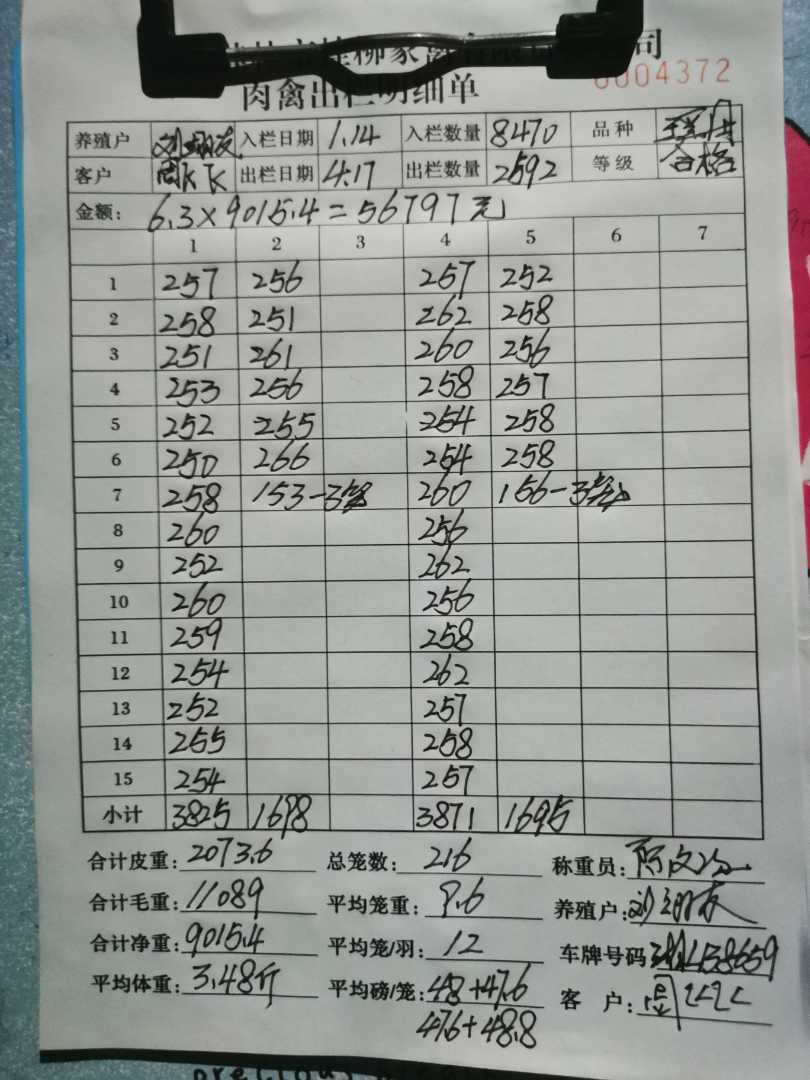 司
0004372
肉禽出栏明细单
养殖户 刘翊友 入栏日期 1.14 入栏数量 8470 品种
客户 出栏日期 4.17 出栏数量 2592 等级 合格
金额: 6.3×9015.4=56797元
1 2 3 4 5 6 7
1 257 256 257 252
2 258 251 262 258
3 251 261 260 256
4 253 256 258 257
5 252 255 254 258
6 250 266 254 258
7 258 153-3笼 260 156-3笼
8 260 256
9 252 262
10 260 256
11 259 258
12 254 262
13 252 257
14 255 258
15 254 257
小计 3825 1698 3871 1695
合计皮重: 2073.6 总笼数: 216 称重员:
合计毛重: 11089 平均笼重: 9.6 养殖户: 刘翊友
合计净重: 9015.4 平均笼/羽: 12 车牌号码
平均体重: 3.48斤 平均磅/笼: 48+47.6 客户: 周
47.6+48.8
precious